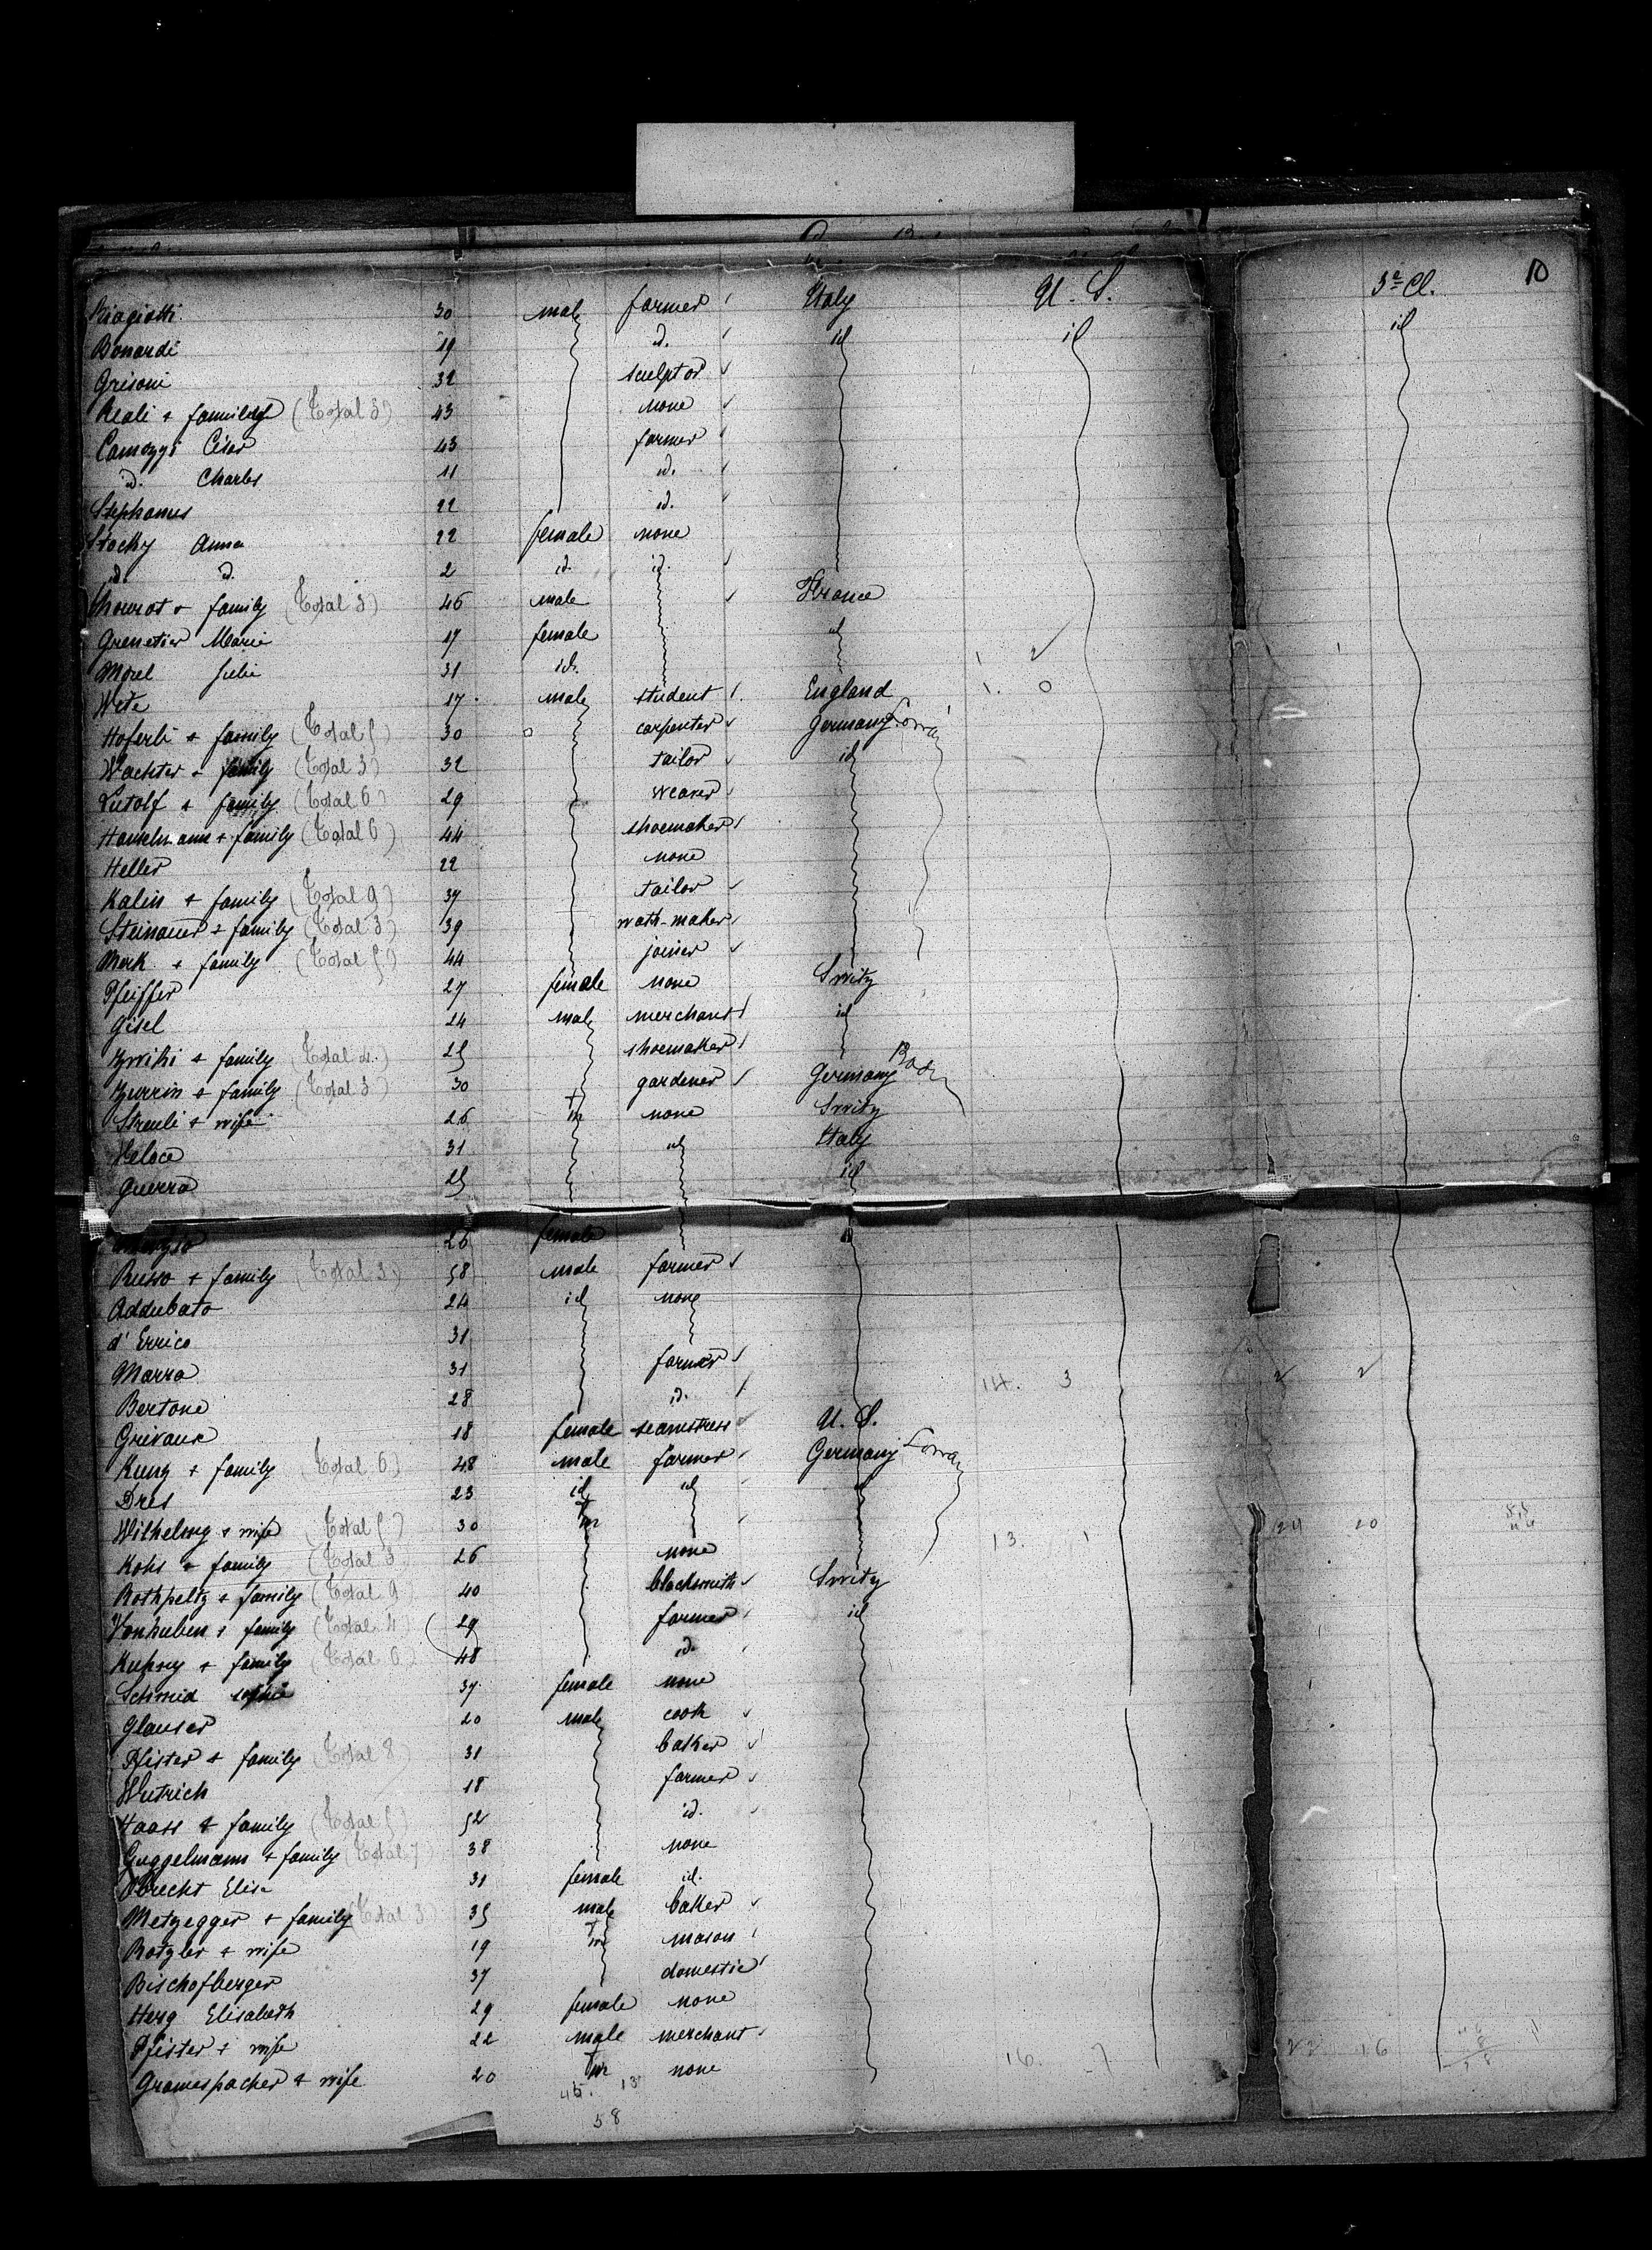 10
3e Cl.
Biagiotti 30 male farmer Italy U. S.
Bonardi 19 id. id id id
Grisoni 32 sculptor
Reali + family (Total 5) 43 none
Camozzi César 43 farmer
id. Charles 11 id.
Stephanus 22 id.
Stocky Anna 22 female none
id. id. 2 id. id.
+ family (Total 3) 46 male France
Grenetier Marie 17 female id
Morel Julie 31 id.
Wete 17 male student England 1. 0
Hoferli + family (Total 5) 30 carpenter Germany Lorrain
Wachter + family (Total 3) 32 tailor id
Lutolf + family (Total 6) 29 weaver
Hanselmann + family (Total 6) 44 shoemaker
Heller 22 none
Kalin + family (Total 9) 37 tailor
Steinauer + family (Total 3) 39 wath-maker
Merk + family (Total 5) 44 joiner
Pfeiffer 27 female none Switz
Gisel 24 male merchant id
Zwiki + family (Total 4) 25 shoemaker
Zurrin + family (Total 3) 30 gardener Germany Baden
Streuli + wife 26 m none Switz
Veloce 31 id Italy
Guerra 25 id
26 female
Russo + family (Total 3) 58 male farmer
Addubato 24 id none
d'Errico 31
Marra 31 farmer 14. 3
Bertone 28 id.
Grivaux 18 female seamstress U. S.
Kunz + family (Total 6) 48 male farmer Germany Lorrain
Dres 23 id id id
Wilhelmy + wife (Total 5) 30 m 13. 1 24 20
Kohs + family (Total 3) 26 none
Rothpeltz + family (Total 9) 40 blacksmith Switz
Vonhuben + family (Total 4) 29 farmer id
Kupsey + family (Total 6) 48 id.
Schmid Sophie 37 female none
Glauser 20 male cook
Pfister + family (Total 8) 31 baker
Wutrich 18 farmer
Haass + family (Total 5) 52 id.
Guggelmann + family (Total 7) 38 none
Obrecht Elise 31 female id.
Metzegger + family (Total 3) 35 male baker
Rotzler + wife 19 m mason
Bischofberger 37 domestic
Herg Elisabeth 29 female none
Pfister + wife 22 male merchant 16. 7 22 16
Gramespacher + wife 20 m none
45. 13
58